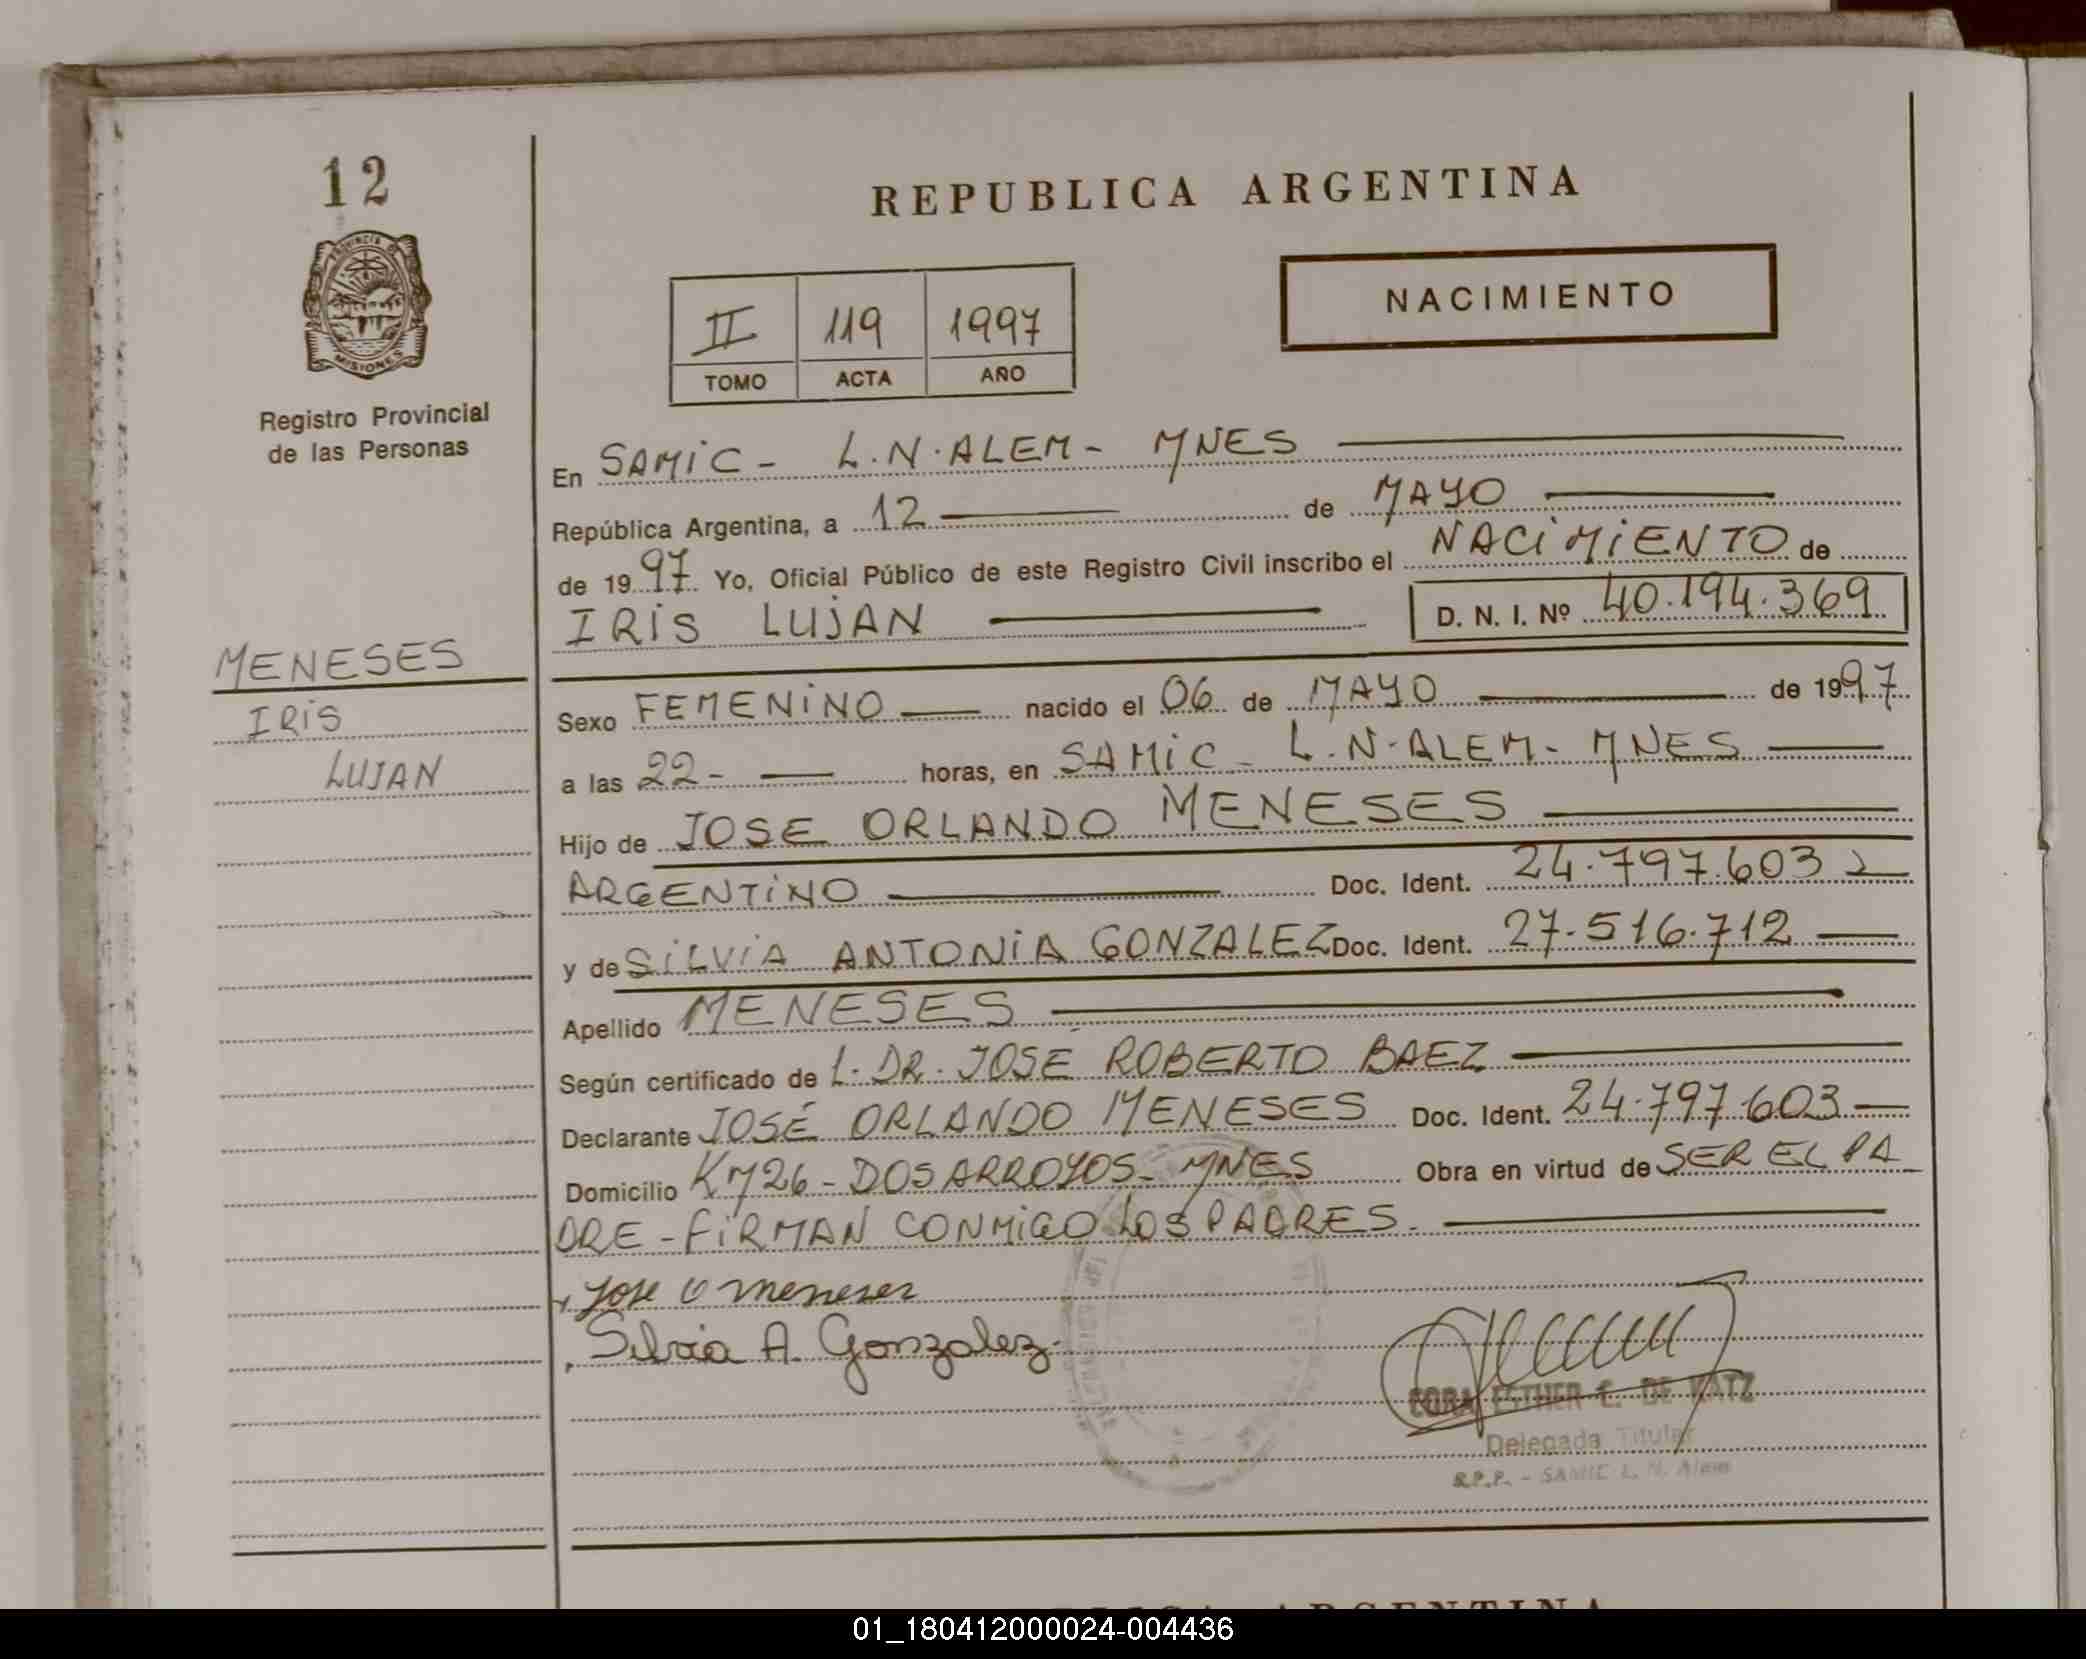 12
PROVINCIA DE
MISIONES
Registro Provincial
de las Personas
MENESES
IRIS
LUJAN
REPUBLICA ARGENTINA
II 119 1997
TOMO ACTA AÑO
NACIMIENTO
En SAMIC - L.N.ALEM - MNES
República Argentina, a 12 de MAYO
de 1997 Yo, Oficial Público de este Registro Civil inscribo el NACIMIENTO de
IRIS LUJAN D. N. I. Nº 40.194.369
Sexo FEMENINO nacido el 06 de MAYO de 1997
a las 22- horas, en SAMIC - L.N.ALEM - MNES
Hijo de JOSE ORLANDO MENESES
ARGENTINO Doc. Ident. 24.797.603
y de SILVIA ANTONIA GONZALEZ Doc. Ident. 27.516.712
Apellido MENESES
Según certificado de L. DR. JOSÉ ROBERTO BAEZ
Declarante JOSÉ ORLANDO MENESES Doc. Ident. 24.797.603
Domicilio KM26 - DOS ARROYOS - MNES Obra en virtud de SER EL PA
DRE - FIRMAN CONMIGO LOS PADRES.
Jose O meneses
Silvia A. Gonzalez
ESTHER C. DE KATZ
Delegada Titular
R.P.P. - SAMIC L. N. Alem
ARGENTINA
01_180412000024-004436